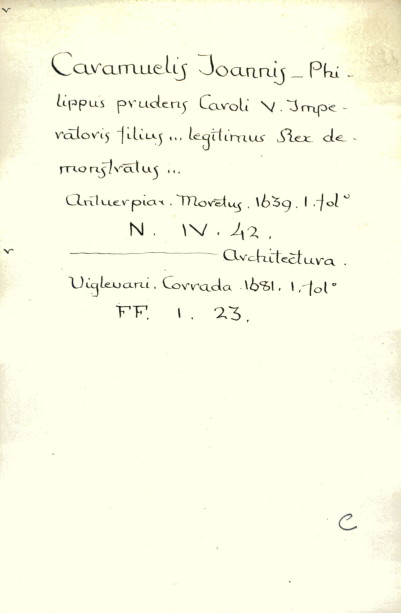 Caramuelis Joannis - Phi-
lippus prudens Caroli V. Impe-
ratoris filius ... legitimus Rex de-
monstratus ...
Antuerpiae. Moretus. 1639. 1. fol°
N. IV. 42.
——— Architectura.
Viglevani. Corrada. 1681. 1. fol°
FF. 1. 23.
C